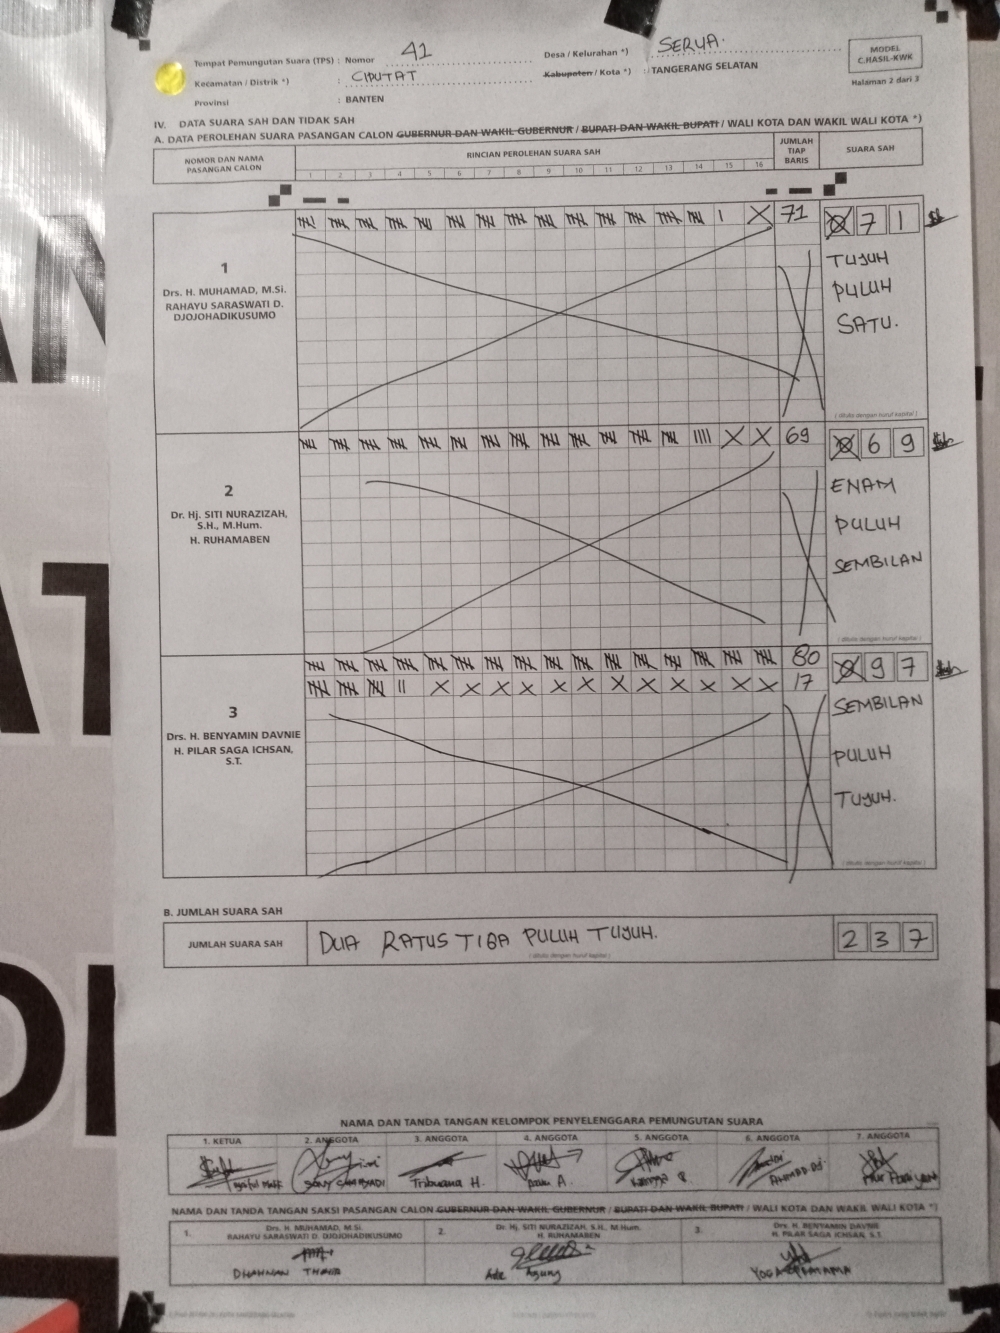 Tempat Pemungutan Suara (TPS) : Nomor 41 Desa / Kelurahan *) SERUA.
Kecamatan / Distrik *) : CIPUTAT Kabupaten / Kota *) : TANGERANG SELATAN
Provinsi : BANTEN
MODEL
C.HASIL-KWK
Halaman 2 dari 3
IV. DATA SUARA SAH DAN TIDAK SAH
A. DATA PEROLEHAN SUARA PASANGAN CALON GUBERNUR DAN WAKIL GUBERNUR / BUPATI DAN WAKIL BUPATI / WALI KOTA DAN WAKIL WALI KOTA *)
NOMOR DAN NAMA
PASANGAN CALON
RINCIAN PEROLEHAN SUARA SAH
1 2 3 4 5 6 7 8 9 10 11 12 13 14 15 16
JUMLAH
TIAP
BARIS
SUARA SAH
1
Drs. H. MUHAMAD, M.Si.
RAHAYU SARASWATI D.
DJOJOHADIKUSUMO
71
X 7 1
TUJUH
PULUH
SATU.
( ditulis dengan huruf kapital )
2
Dr. Hj. SITI NURAZIZAH,
S.H., M.Hum.
H. RUHAMABEN
69
X 6 9
ENAM
PULUH
SEMBILAN
( ditulis dengan huruf kapital )
3
Drs. H. BENYAMIN DAVNIE
H. PILAR SAGA ICHSAN,
S.T.
80
17
X 9 7
SEMBILAN
PULUH
TUJUH.
( ditulis dengan huruf kapital )
B. JUMLAH SUARA SAH
JUMLAH SUARA SAH
DUA RATUS TIGA PULUH TUJUH.
( ditulis dengan huruf kapital )
2 3 7
NAMA DAN TANDA TANGAN KELOMPOK PENYELENGGARA PEMUNGUTAN SUARA
1. KETUA 2. ANGGOTA 3. ANGGOTA 4. ANGGOTA 5. ANGGOTA 6. ANGGOTA 7. ANGGOTA
Tribuana H.
NAMA DAN TANDA TANGAN SAKSI PASANGAN CALON GUBERNUR DAN WAKIL GUBERNUR / BUPATI DAN WAKIL BUPATI / WALI KOTA DAN WAKIL WALI KOTA *)
1. Drs. H. MUHAMAD, M.Si.
RAHAYU SARASWATI D. DJOJOHADIKUSUMO
2. Dr. Hj. SITI NURAZIZAH, S.H., M.Hum.
H. RUHAMABEN
Ade Agung
3. Drs. H. BENYAMIN DAVNIE
H. PILAR SAGA ICHSAN, S.T.